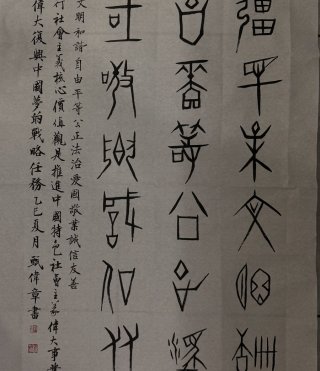 彊民主文明
等公正
敬業誠信友
文明和諧自由平等公正法治愛國敬業誠信友善
行社會主義核心價值觀是推進中國特色社會主義偉大事業
偉大復興中國夢的戰略任務乙巳夏月甄偉章書